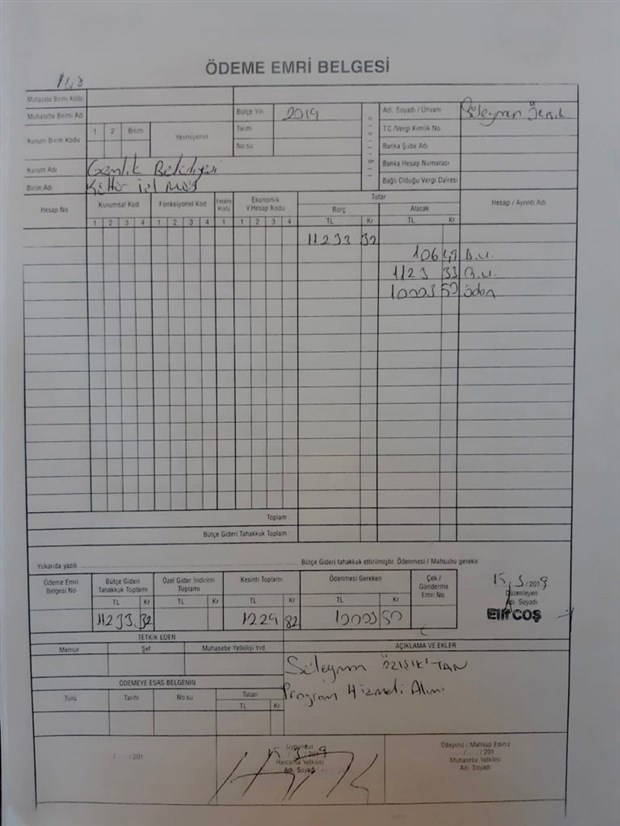 ÖDEME EMRİ BELGESİ
Muhasebe Birimi Kodu
Muhasebe Birimi Adı
Bütçe Yılı 2019
Adı, Soyadı / Ünvanı Süleyman
Kurum Birim Kodu 1 2 Birim Yevmiyenin Tarihi
No.su
T.C./Vergi Kimlik No
Banka Şube Adı
Banka Hesap Numarası
Bağlı Olduğu Vergi Dairesi
Kurum Adı Gemlik Belediyesi
Birim Adı Kültür
Hesap No Kurumsal Kod Fonksiyonel Kod Ekonomik Tutar Hesap / Ayrıntı Adı
V.Hesap Kodu Borç Alacak
1 2 3 4 1 2 3 4 1 1 2 3 4 TL Kr TL Kr
11233 32
106 49 D.V.
1123 33 G.V.
10003 50 öden
Toplam
Bütçe Gideri Tahakkuk Toplamı
Yukarıda yazılı Bütçe Gideri tahakkuk ettirilmiştir. Ödenmesi / Mahsubu gerekir.
Ödeme Emri Belgesi No Bütçe Gideri Tahakkuk Toplamı Özel Gider İndirimi Toplamı Kesinti Toplamı Ödenmesi Gereken Çek / Gönderme Emri No
15/3/2019
Düzenleyen
Adı Soyadı
TL Kr TL Kr TL Kr TL Kr
Elif COŞ
11233 32 1229 82 10003 50
TETKİK EDEN
AÇIKLAMA VE EKLER
Memur Şef Muhasebe Yetkilisi Yrd.
Süleyman ÖZIŞIK'TAN
Program Hizmeti Alımı
ÖDEMEYE ESAS BELGENİN
Türü Tarihi No.su Tutarı
TL Kr
.../.../201
Uygundur
Harcama Yetkilisi
Adı Soyadı
Ödeyiniz / Mahsup Ediniz
.../.../201
Muhasebe Yetkilisi
Adı Soyadı